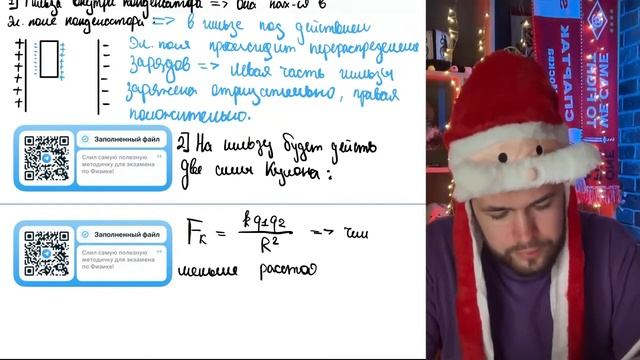 1) Гильза внутри конденсатора => она нах-ся в
Эл. поле конденсатора => в гильзе под действием
Эл. поля происходит перераспределение
зарядов => левая часть гильзы
заряжена отрицательно, правая
положительно.
Заполненный файл
Слил самую полезную
методичку для экзамена
по Физике!
2) На гильзу будет действ
Две силы Кулона:
Заполненный файл
Слил самую полезную
методичку для экзамена
по Физике!
Fк = kq1q2 / R² => чем
меньше расстоя
СПАРТАК
МОСКВА
TO FIGHT
WE CAME